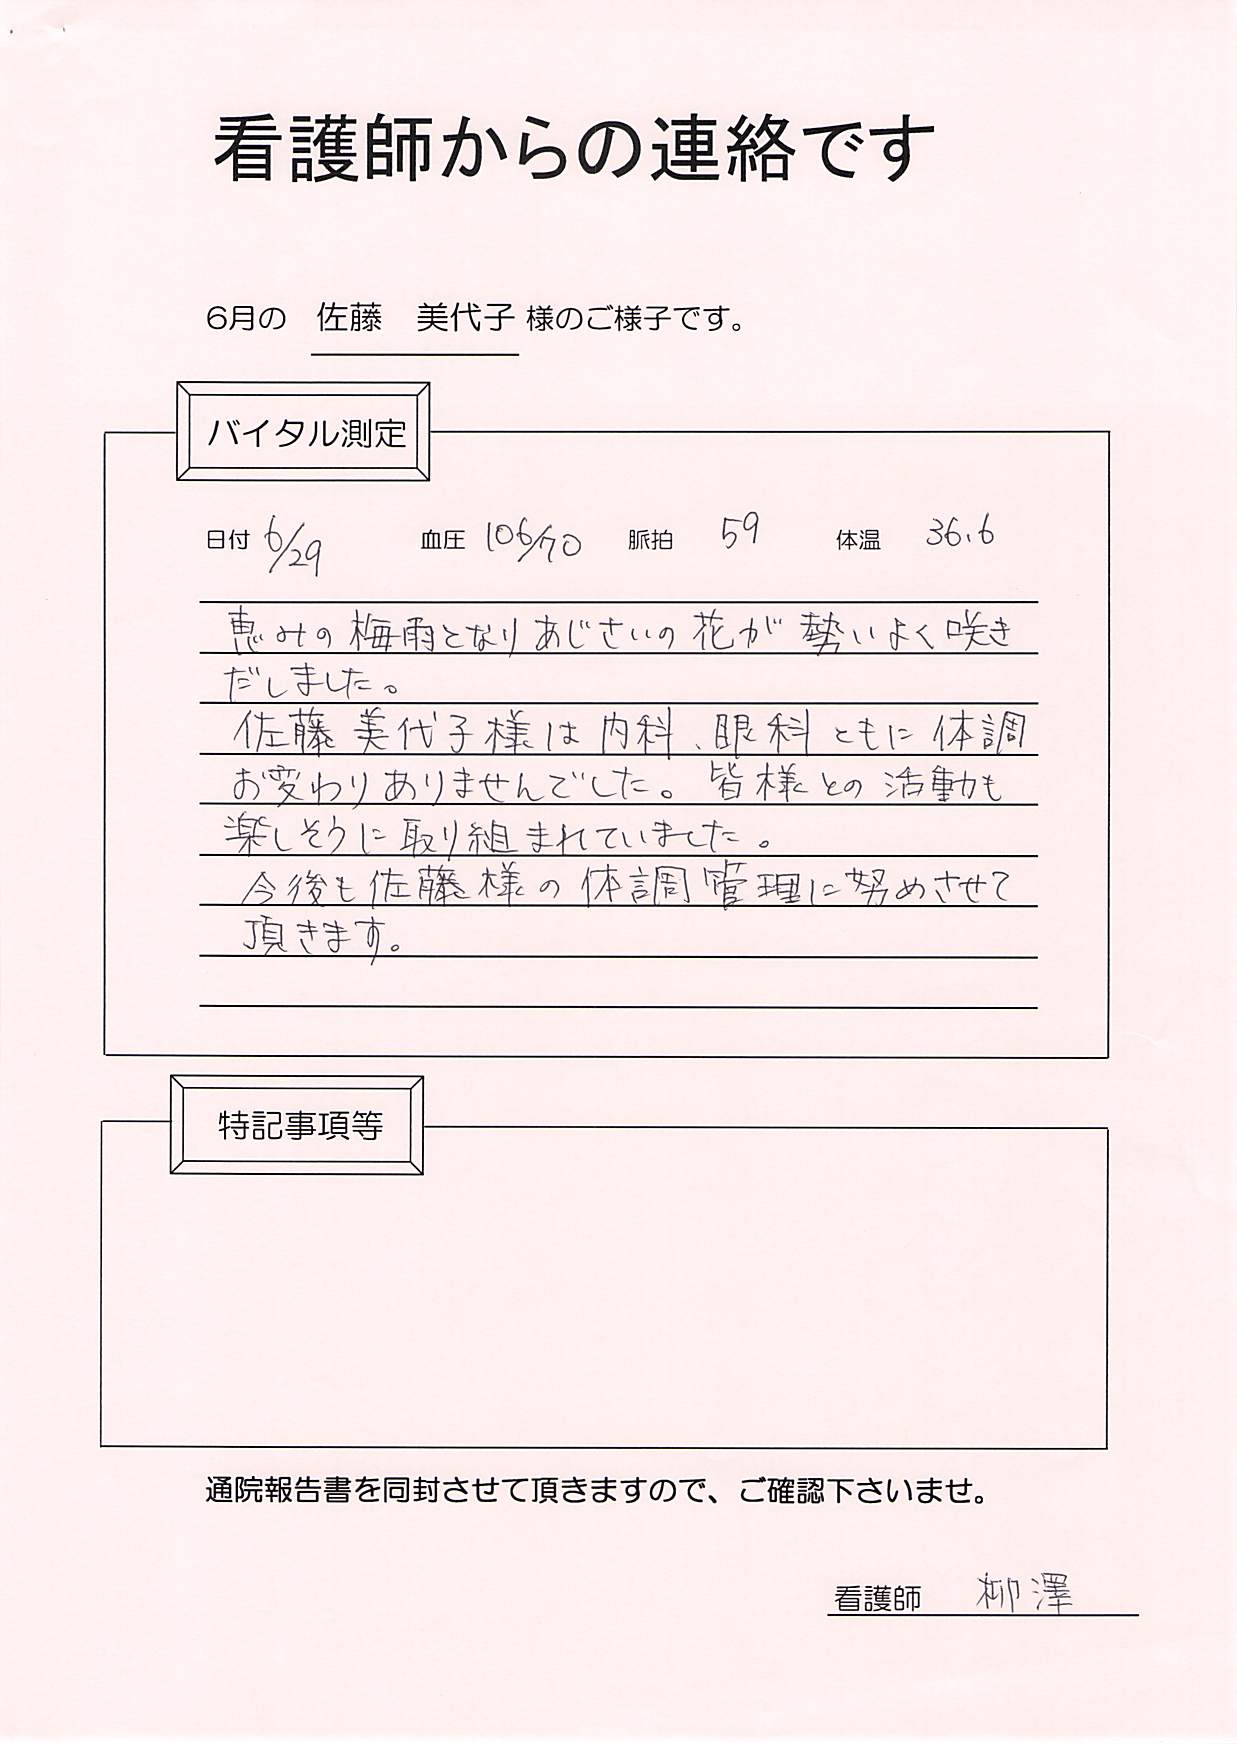 看護師からの連絡です
6月の 佐藤 美代子 様のご様子です。
バイタル測定
日付 6/29 血圧 106/70 脈拍 59 体温 36.6
恵みの梅雨となりあじさいの花が勢いよく咲き
だしました。
佐藤美代子様は内科、眼科ともに体調
お変わりありませんでした。皆様との活動も
楽しそうに取り組まれていました。
今後も佐藤様の体調管理に努めさせて
頂きます。
特記事項等
通院報告書を同封させて頂きますので、ご確認下さいませ。
看護師 柳澤